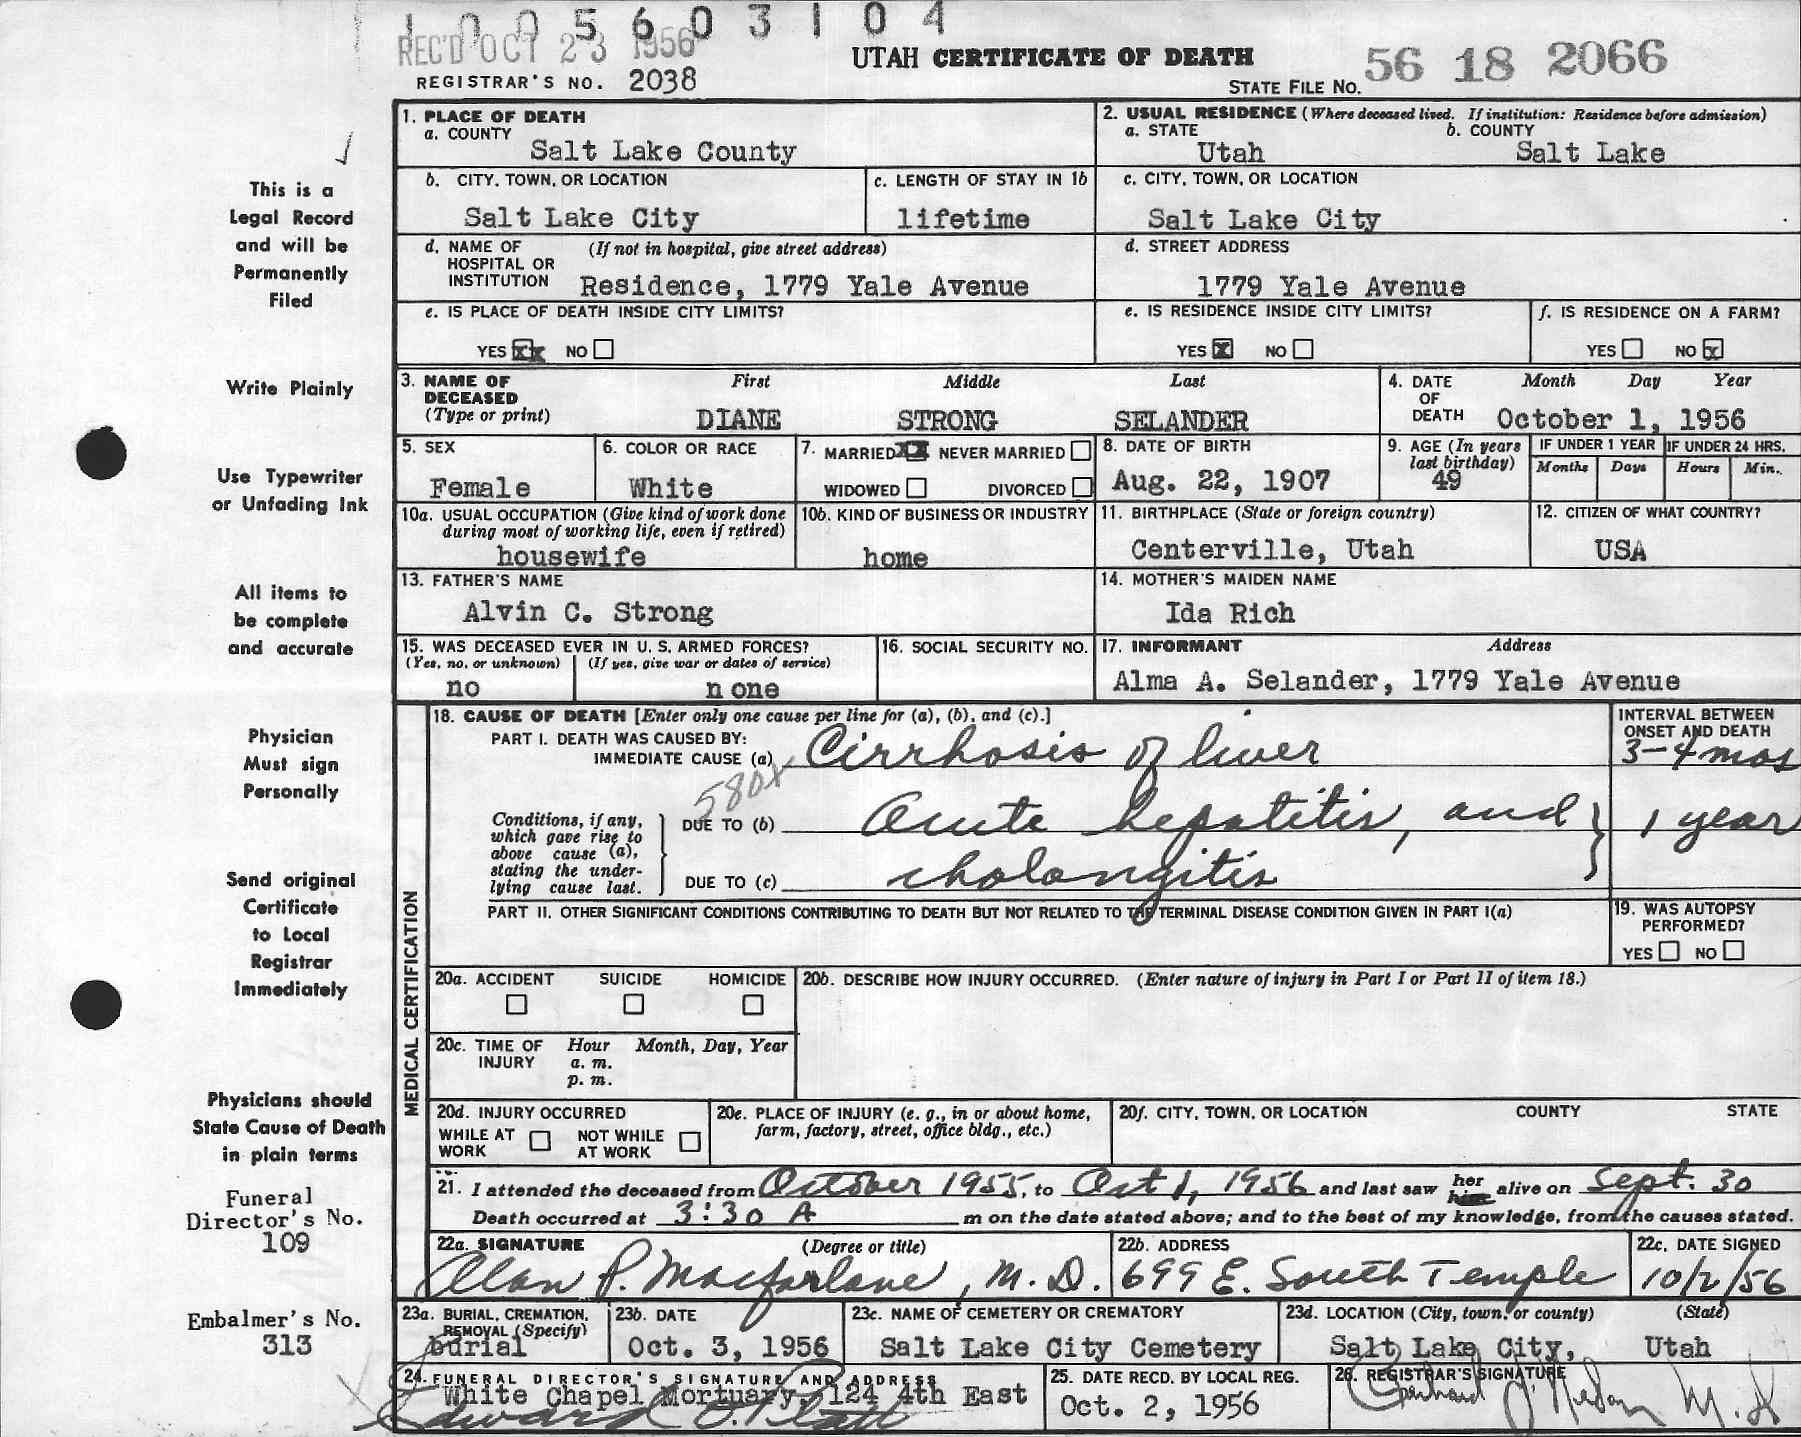 1005603104
REC'D OCT 23 1956
UTAH CERTIFICATE OF DEATH
REGISTRAR'S NO. 2038
STATE FILE NO. 56 18 2066
This is a
Legal Record
and will be
Permanently
Filed
Write Plainly
Use Typewriter
or Unfading Ink
All items to
be complete
and accurate
Physician
Must sign
Personally
Send original
Certificate
to Local
Registrar
Immediately
Physicians should
State Cause of Death
in plain terms
Funeral
Director's No.
109
Embalmer's No.
313
1. PLACE OF DEATH
a. COUNTY
Salt Lake County
2. USUAL RESIDENCE (Where deceased lived. If institution: Residence before admission)
a. STATE b. COUNTY
Utah Salt Lake
b. CITY, TOWN, OR LOCATION
Salt Lake City
c. LENGTH OF STAY IN 1b
lifetime
c. CITY, TOWN, OR LOCATION
Salt Lake City
d. NAME OF (If not in hospital, give street address)
HOSPITAL OR
INSTITUTION Residence, 1779 Yale Avenue
d. STREET ADDRESS
1779 Yale Avenue
e. IS PLACE OF DEATH INSIDE CITY LIMITS?
YES XX NO
e. IS RESIDENCE INSIDE CITY LIMITS?
YES X NO
f. IS RESIDENCE ON A FARM?
YES NO X
3. NAME OF First Middle Last
DECEASED
(Type or print) DIANE STRONG SELANDER
4. DATE Month Day Year
OF
DEATH October 1, 1956
5. SEX
Female
6. COLOR OR RACE
White
7. MARRIED XX NEVER MARRIED
WIDOWED DIVORCED
8. DATE OF BIRTH
Aug. 22, 1907
9. AGE (In years
last birthday)
49
IF UNDER 1 YEAR IF UNDER 24 HRS.
Months Days Hours Min.
10a. USUAL OCCUPATION (Give kind of work done
during most of working life, even if retired)
housewife
10b. KIND OF BUSINESS OR INDUSTRY
home
11. BIRTHPLACE (State or foreign country)
Centerville, Utah
12. CITIZEN OF WHAT COUNTRY?
USA
13. FATHER'S NAME
Alvin C. Strong
14. MOTHER'S MAIDEN NAME
Ida Rich
15. WAS DECEASED EVER IN U. S. ARMED FORCES?
(Yes, no, or unknown) (If yes, give war or dates of service)
no none
16. SOCIAL SECURITY NO.
17. INFORMANT Address
Alma A. Selander, 1779 Yale Avenue
MEDICAL CERTIFICATION
18. CAUSE OF DEATH [Enter only one cause per line for (a), (b), and (c).]
PART I. DEATH WAS CAUSED BY:
IMMEDIATE CAUSE (a) Cirrhosis of liver
580X
INTERVAL BETWEEN
ONSET AND DEATH
3-4 mos
Conditions, if any,
which gave rise to
above cause (a),
stating the under-
lying cause last.
DUE TO (b) Acute hepatitis, and
1 year
DUE TO (c) cholangitis
PART II. OTHER SIGNIFICANT CONDITIONS CONTRIBUTING TO DEATH BUT NOT RELATED TO THE TERMINAL DISEASE CONDITION GIVEN IN PART I(a)
19. WAS AUTOPSY
PERFORMED?
YES NO
20a. ACCIDENT SUICIDE HOMICIDE
20b. DESCRIBE HOW INJURY OCCURRED. (Enter nature of injury in Part I or Part II of item 18.)
20c. TIME OF Hour Month, Day, Year
INJURY a. m.
p. m.
20d. INJURY OCCURRED
WHILE AT NOT WHILE
WORK AT WORK
20e. PLACE OF INJURY (e. g., in or about home,
farm, factory, street, office bldg., etc.)
20f. CITY, TOWN, OR LOCATION COUNTY STATE
21. I attended the deceased from October 1955, to Oct 1, 1956 and last saw her him alive on Sept. 30
Death occurred at 3:30 A m on the date stated above; and to the best of my knowledge, from the causes stated.
22a. SIGNATURE (Degree or title)
Alan P. Macfarlane, M.D.
22b. ADDRESS
699 E. South Temple
22c. DATE SIGNED
10/2/56
23a. BURIAL, CREMATION,
REMOVAL (Specify)
burial
23b. DATE
Oct. 3, 1956
23c. NAME OF CEMETERY OR CREMATORY
Salt Lake City Cemetery
23d. LOCATION (City, town, or county) (State)
Salt Lake City, Utah
24. FUNERAL DIRECTOR'S SIGNATURE AND ADDRESS
White Chapel Mortuary, 124 4th East
Edward
25. DATE RECD. BY LOCAL REG.
Oct. 2, 1956
26. REGISTRAR'S SIGNATURE